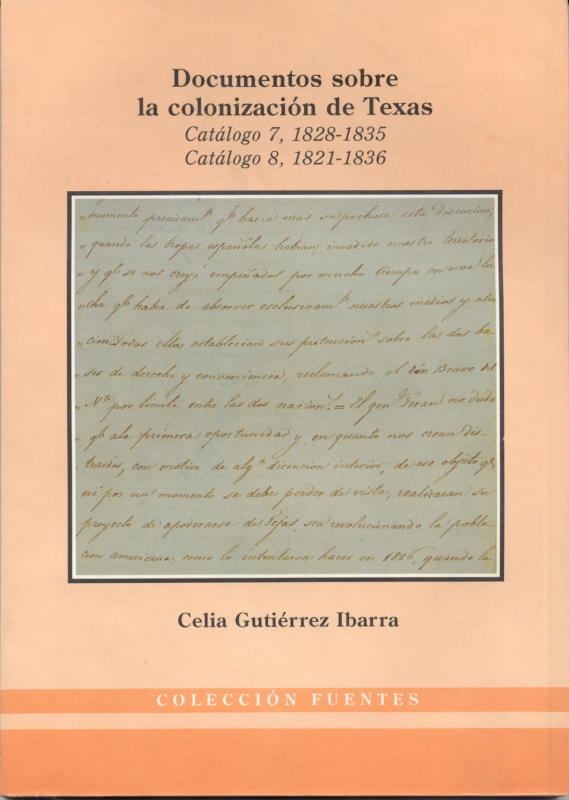 Documentos sobre
la colonización de Texas
Catálogo 7, 1828-1835
Catálogo 8, 1821-1836
"momento precisamte qe hacia mas sospechosa esta discucion,
" quando las tropas españolas habian invadido nuestro territorio
" y qe se nos creyó empeñados por mucho tiempo en una lu
" cha qe habia de absorver esclusivamte nuestros medios y aten
" cion. Todas ellas establecian sus pretencions sobre las dos ba-
" ses de derecho y conveniencia, reclamando el rio Bravo del
" Nte por limite entre las dos nacions. = El gen Teran no duda
qe a la primera oportunidad y en quanto nos crean dis-
traidos, con motivo de alga dicencion interior, de ese objeto qe
ni por un momento se debe perder de vista, realizaran su
proyecto de apoderarse de Tejas, sea revolucionando la pobla-
cion americana, como lo intentaron hacer en 1826, quando la
Celia Gutiérrez Ibarra
COLECCIÓN FUENTES